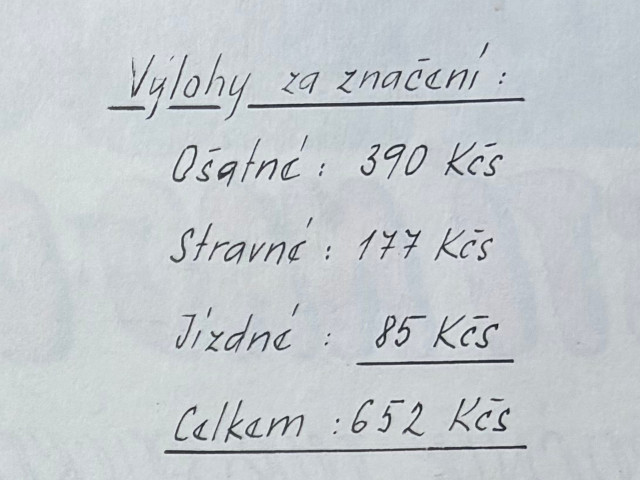 Výlohy za značení:
Ošatné: 390 Kčs
Stravné: 177 Kčs
Jízdné: 85 Kčs
Celkem: 652 Kčs